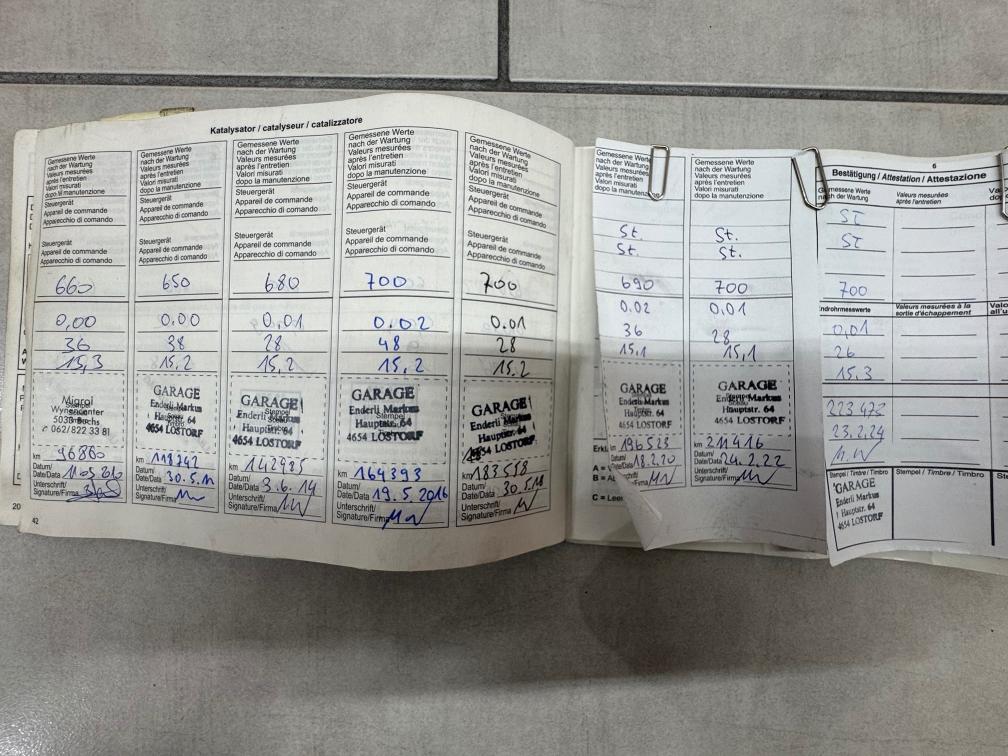 Katalysator / catalyseur / catalizzatore
Gemessene Werte
nach der Wartung
Valeurs mesurées
après l'entretien
Valori misurati
dopo la manutenzione
Steuergerät
Appareil de commande
Apparecchio di comando
Steuergerät
Appareil de commande
Apparecchio di comando
660
0,00
36
15,3
Migrol
Wynecenter
5033 Buchs
062/822 33 81
km 96860
Datum/
Date/Data
Unterschrift/
Signature/Firma
Gemessene Werte
nach der Wartung
Valeurs mesurées
après l'entretien
Valori misurati
dopo la manutenzione
Steuergerät
Appareil de commande
Apparecchio di comando
Steuergerät
Appareil de commande
Apparecchio di comando
650
0.00
38
15.2
GARAGE
Enderli Markus
Hauptstr. 64
4654 LOSTORF
km 118242
Datum/
Date/Data 30.5.
Unterschrift/
Signature/Firma
Gemessene Werte
nach der Wartung
Valeurs mesurées
après l'entretien
Valori misurati
dopo la manutenzione
Steuergerät
Appareil de commande
Apparecchio di comando
Steuergerät
Appareil de commande
Apparecchio di comando
680
0,01
28
15,2
GARAGE
Enderli Markus
Hauptstr. 64
4654 LOSTORF
km 142985
Datum/
Date/Data 3.6.14
Unterschrift/
Signature/Firma
Gemessene Werte
nach der Wartung
Valeurs mesurées
après l'entretien
Valori misurati
dopo la manutenzione
Steuergerät
Appareil de commande
Apparecchio di comando
Steuergerät
Appareil de commande
Apparecchio di comando
700
0.02
48
15,2
GARAGE
Enderli Markus
Hauptstr. 64
4654 LOSTORF
km 164393
Datum/
Date/Data 19.5.2016
Unterschrift/
Signature/Firma
Gemessene Werte
nach der Wartung
Valeurs mesurées
après l'entretien
Valori misurati
dopo la manutenzione
Steuergerät
Appareil de commande
Apparecchio di comando
Steuergerät
Appareil de commande
Apparecchio di comando
700
0.01
28
15.2
GARAGE
Enderli Markus
Hauptstr. 64
4654 LOSTORF
km 183558
Datum/
Date/Data 30.5.18
Unterschrift/
Signature/Firma
42
20
Gemessene Werte
nach der Wartung
Valeurs mesurées
après l'entretien
Valori misurati
dopo la manutenzione
St.
St.
690
0.02
36
15,1
GARAGE
Enderli Markus
Hauptstr. 64
4654 LOSTORF
km 196523
Datum/
Date/Data 18.2.20
Gemessene Werte
nach der Wartung
Valeurs mesurées
après l'entretien
Valori misurati
dopo la manutenzione
St.
St.
700
0,01
28
15,1
GARAGE
Enderli Markus
Hauptstr. 64
4654 LOSTORF
km 211416
Datum/
Date/Data 24.2.22
Unterschrift/
Signature/Firma
C = Leer
6
Bestätigung / Attestation / Attestazione
Gemessene Werte
nach der Wartung
Valeurs mesurées
après l'entretien
ST
ST
700
Endrohrmesswerte
Valeurs mesurées à la
sortie d'échappement
0,01
26
15.3
223473
23.2.24
Stempel / Timbre / Timbro
Stempel / Timbre / Timbro
GARAGE
Enderli Markus
Hauptstr. 64
4654 LOSTORF